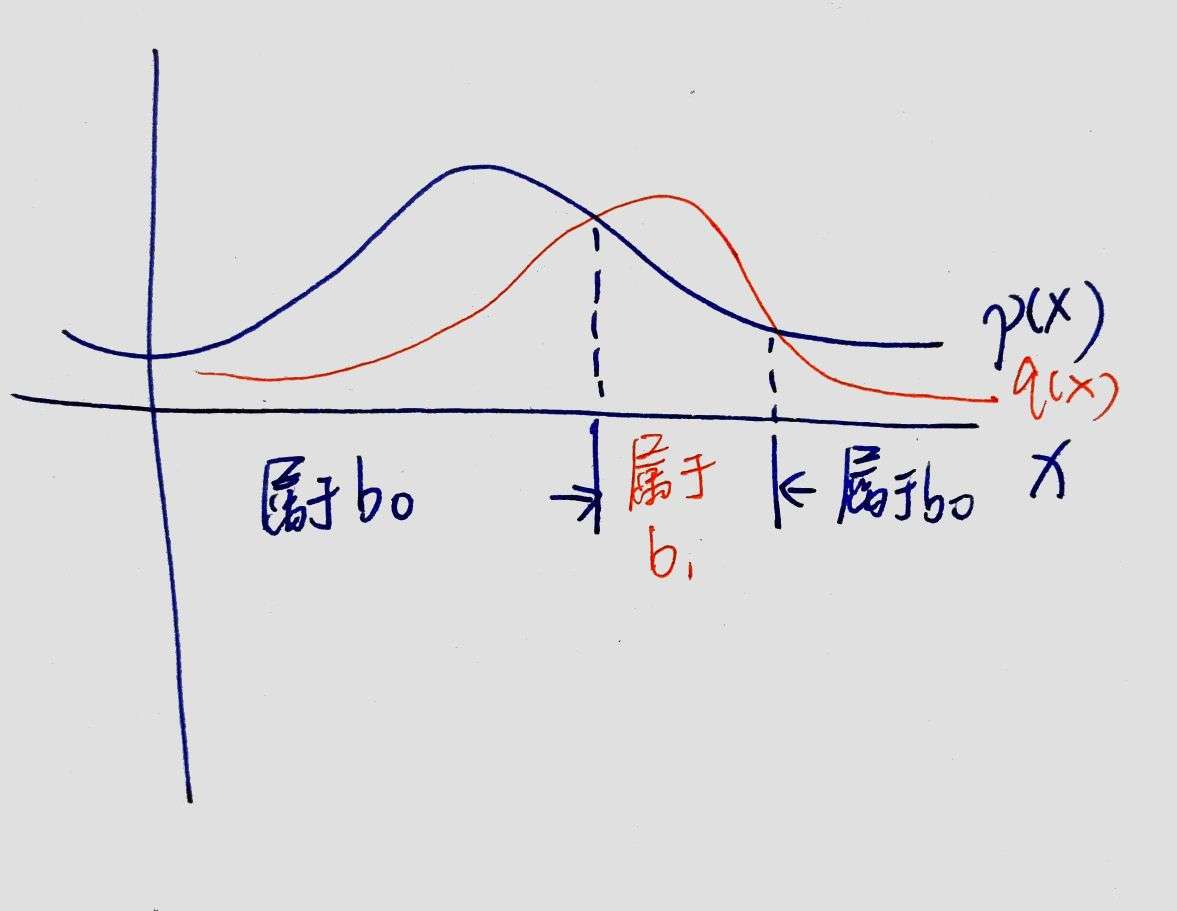 p(x)
q(x)
x
属于b0
→
属于
b1
←
属于b0